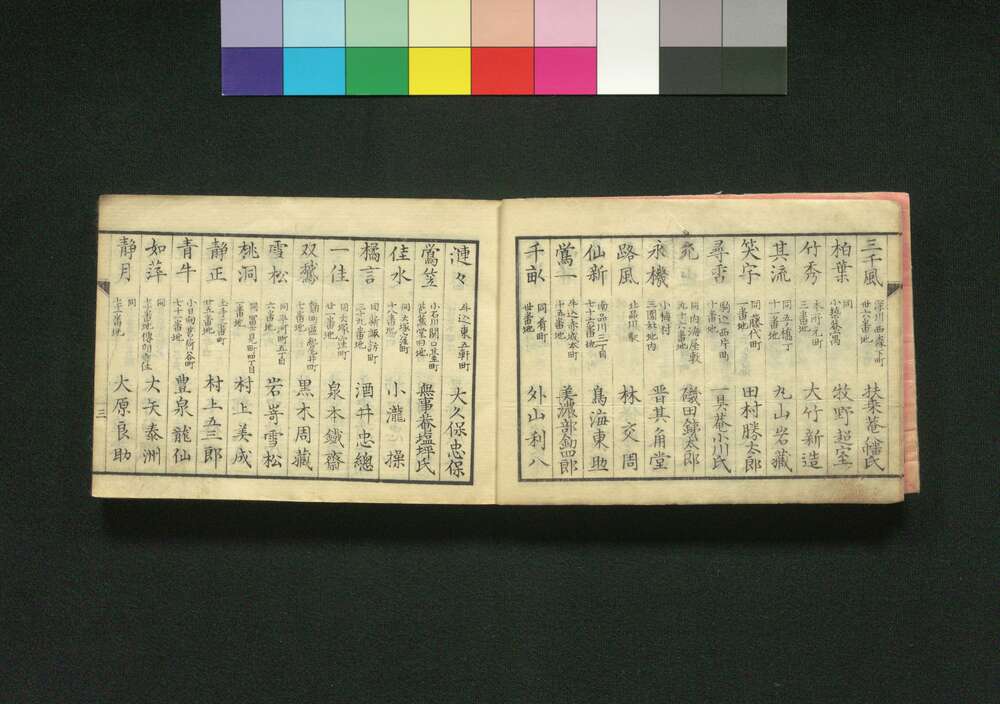 三千風 深川西森下町 廿六番地 扶桑菴幡氏
柏葉 同 小松菴寓 牧野超室
竹秀 本所元町 三番地 大竹新造
其流 同五橋丁 十一番地 丸山岩藏
笑宇 同藤代町 一番地 田村勝太郎
尋香 駒込西片町 十番地 一具菴小川氏
兆 同内海屋敷 九十六番地 磯田錦太郎
永機 小梅村 三圍社地内 晋其角堂
路風 北品川駅 林交周
仙新 南品川二丁目 七十六番地 鳥海東助
鶯一 牛込赤城本町 十五番地 美濃部鉤四郎
千畝 同肴町 廿番地 外山利八
漣々 牛込東五軒町 大久保忠保
鶯笠 小石川關口臺町 芭蕉堂旧地 無事菴塩坪氏
佳水 同大塚窪町 十八番地 小瀧操
橘言 同新諏訪町 三十九番地 酒井忠總
一佳 同大塚窪町 廿一番地 泉本鐵齋
双鶯 七番地 黒木周藏
雪松 同平河町五丁目 六番地 岩嵜雪松
桃洞 同富士見町四丁目 一番地 村上美成
静正 土手三番町 廿五番地 村上五三郎
青牛 小日向茗荷谷町 七十一番地 豊泉龍仙
如萍 同 七十番地傳明寺住 大矢泰洲
静月 同 七十一番地 大原良助
三